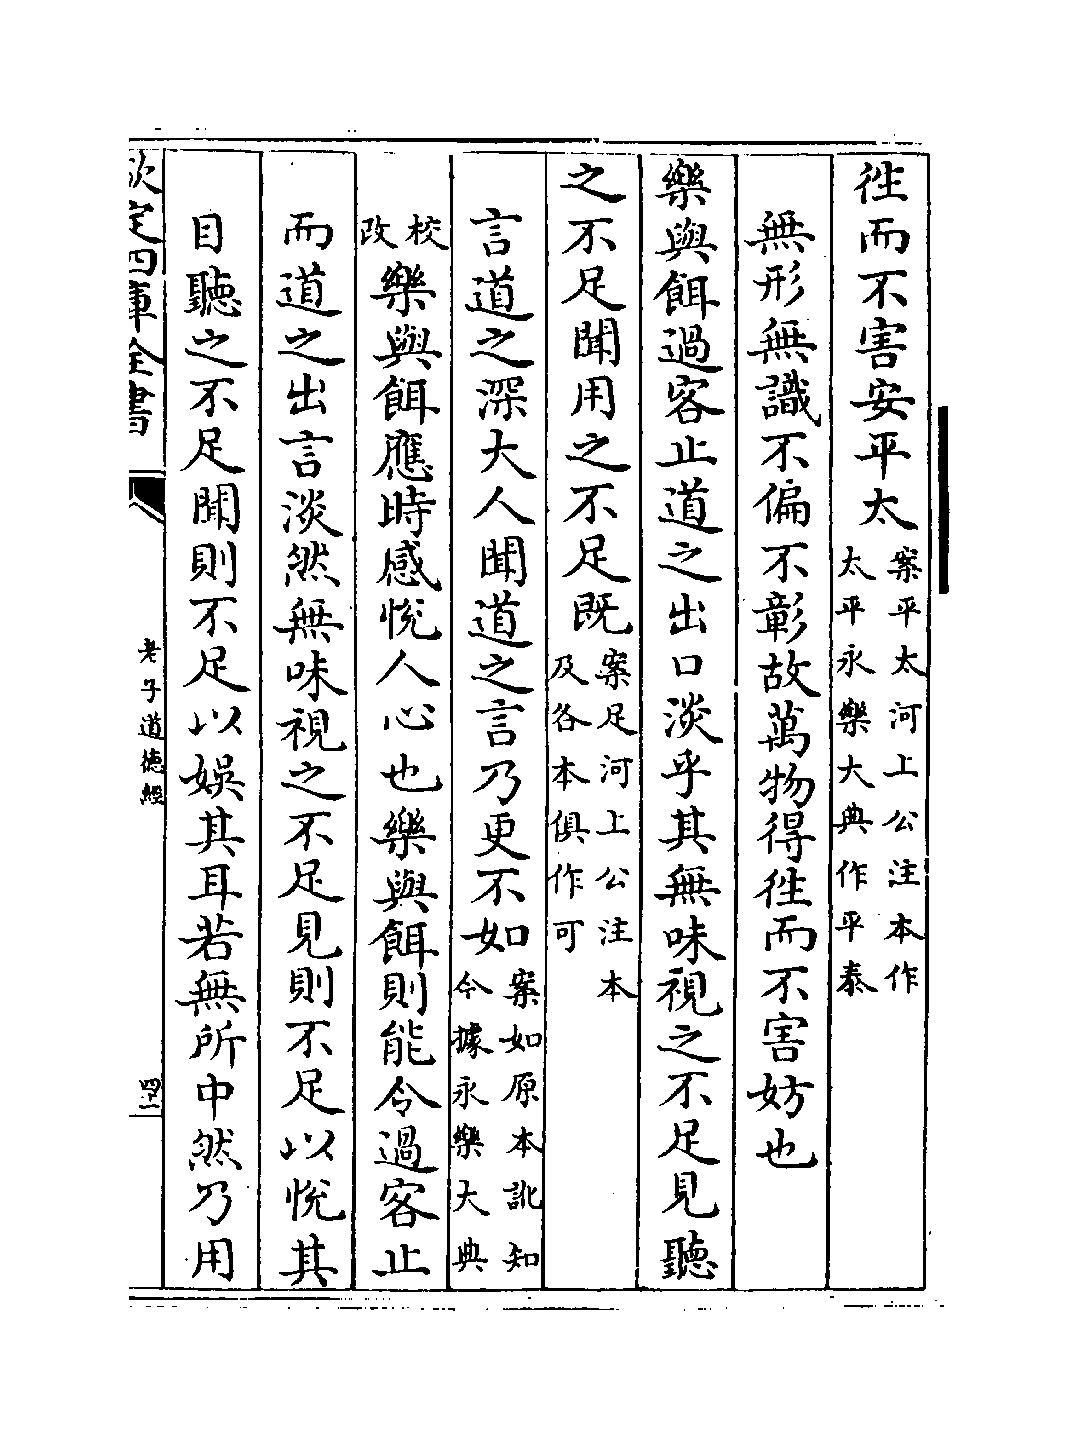 徃而不害安平太案平太河上公注本作太平永樂大典作平泰
無形無識不偏不彰故萬物得徃而不害妨也
樂與餌過客止道之出口淡乎其無味視之不足見聽
之不足聞用之不足既案足河上公注本及各本俱作可
言道之深大人聞道之言乃更不如案如原本訛知今據永樂大典
校改樂與餌應時感悅人心也樂與餌則能令過客止
而道之出言淡然無味視之不足見則不足以悅其
目聽之不足聞則不足以娛其耳若無所中然乃用
欽定四庫全書
老子道德經
四十二